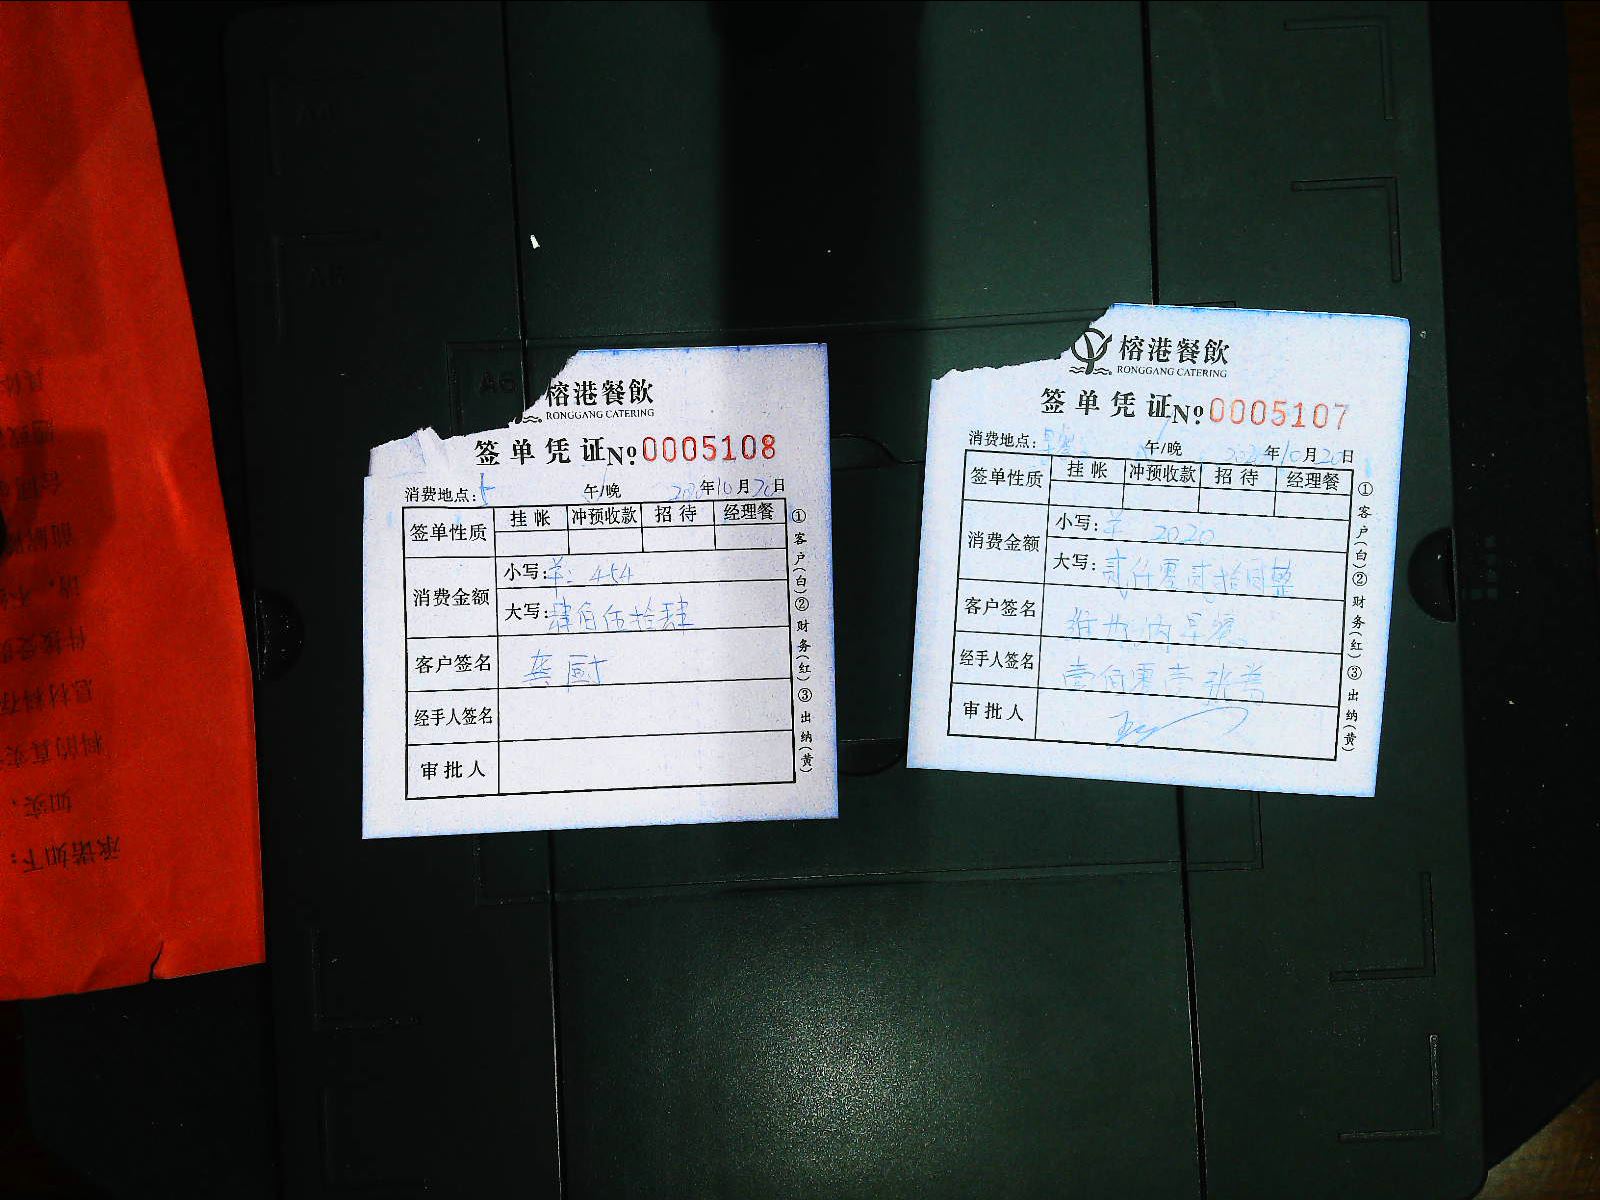 榕港餐飲
RONGGANG CATERING
签单凭证 No 0005108
消费地点: 午/晚 2020年10月20日
签单性质 挂帐 冲预收款 招待 经理餐
消费金额 小写:羊: 454
大写:肆佰伍拾肆
客户签名 龚厨
经手人签名
审批人
①客户(白)②财务(红)③出纳(黄)
榕港餐飲
RONGGANG CATERING
签单凭证 No 0005107
消费地点: 午/晚 2020年10月20日
签单性质 挂帐 冲预收款 招待 经理餐
消费金额 小写:羊 2020
大写:贰仟零贰拾圆整
客户签名
经手人签名 壹佰零壹 张善
审批人
①客户(白)②财务(红)③出纳(黄)
承诺如下:
如实、
料的真实
息材料存
件接受
前解除
合同